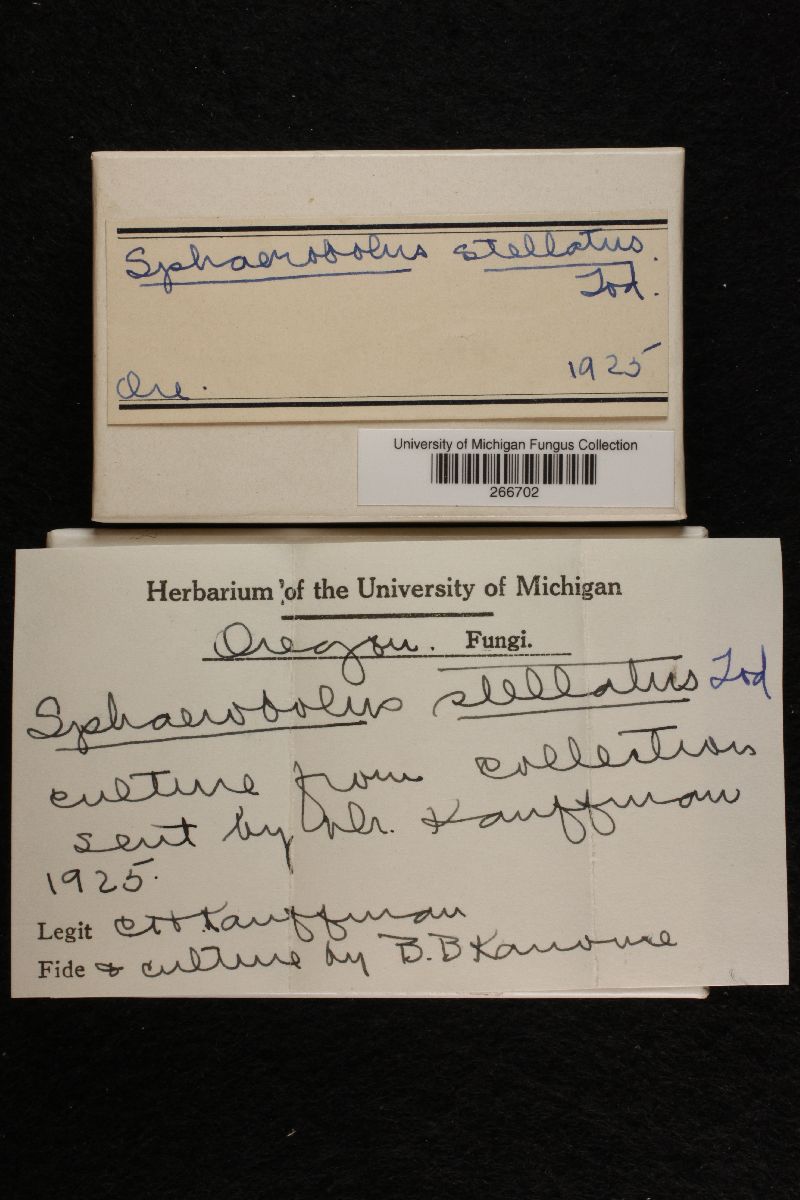 Sphaerobolus stellatus.
Tod.
Ore. 1925
University of Michigan Fungus Collection
266702
Herbarium of the University of Michigan
Oregon. Fungi.
Sphaerobolus stellatus Tod
culture from collection
sent by Dr. Kauffman
1925.
Legit CH Kauffman
Fide & culture by B.B Kanouse